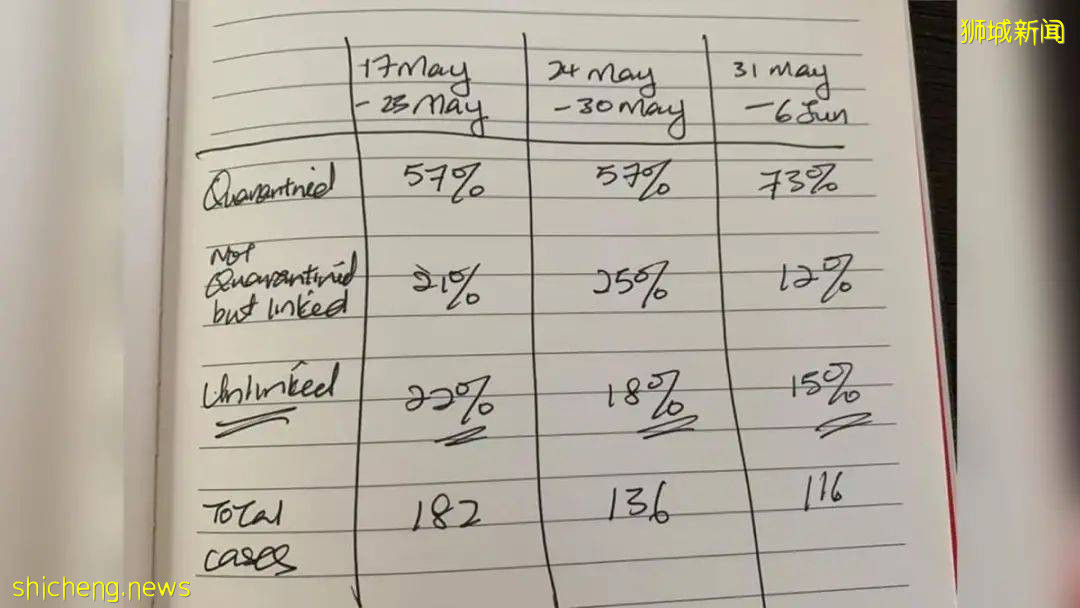 狮城新闻
17 May 24 May 31 May
- 23 May - 30 May - 6 Jun
Quarantined 57% 57% 73%
Not
Quarantined 21% 25% 12%
but linked
Unlinked 22% 18% 15%
Total 182 136 116
cases
shicheng.news